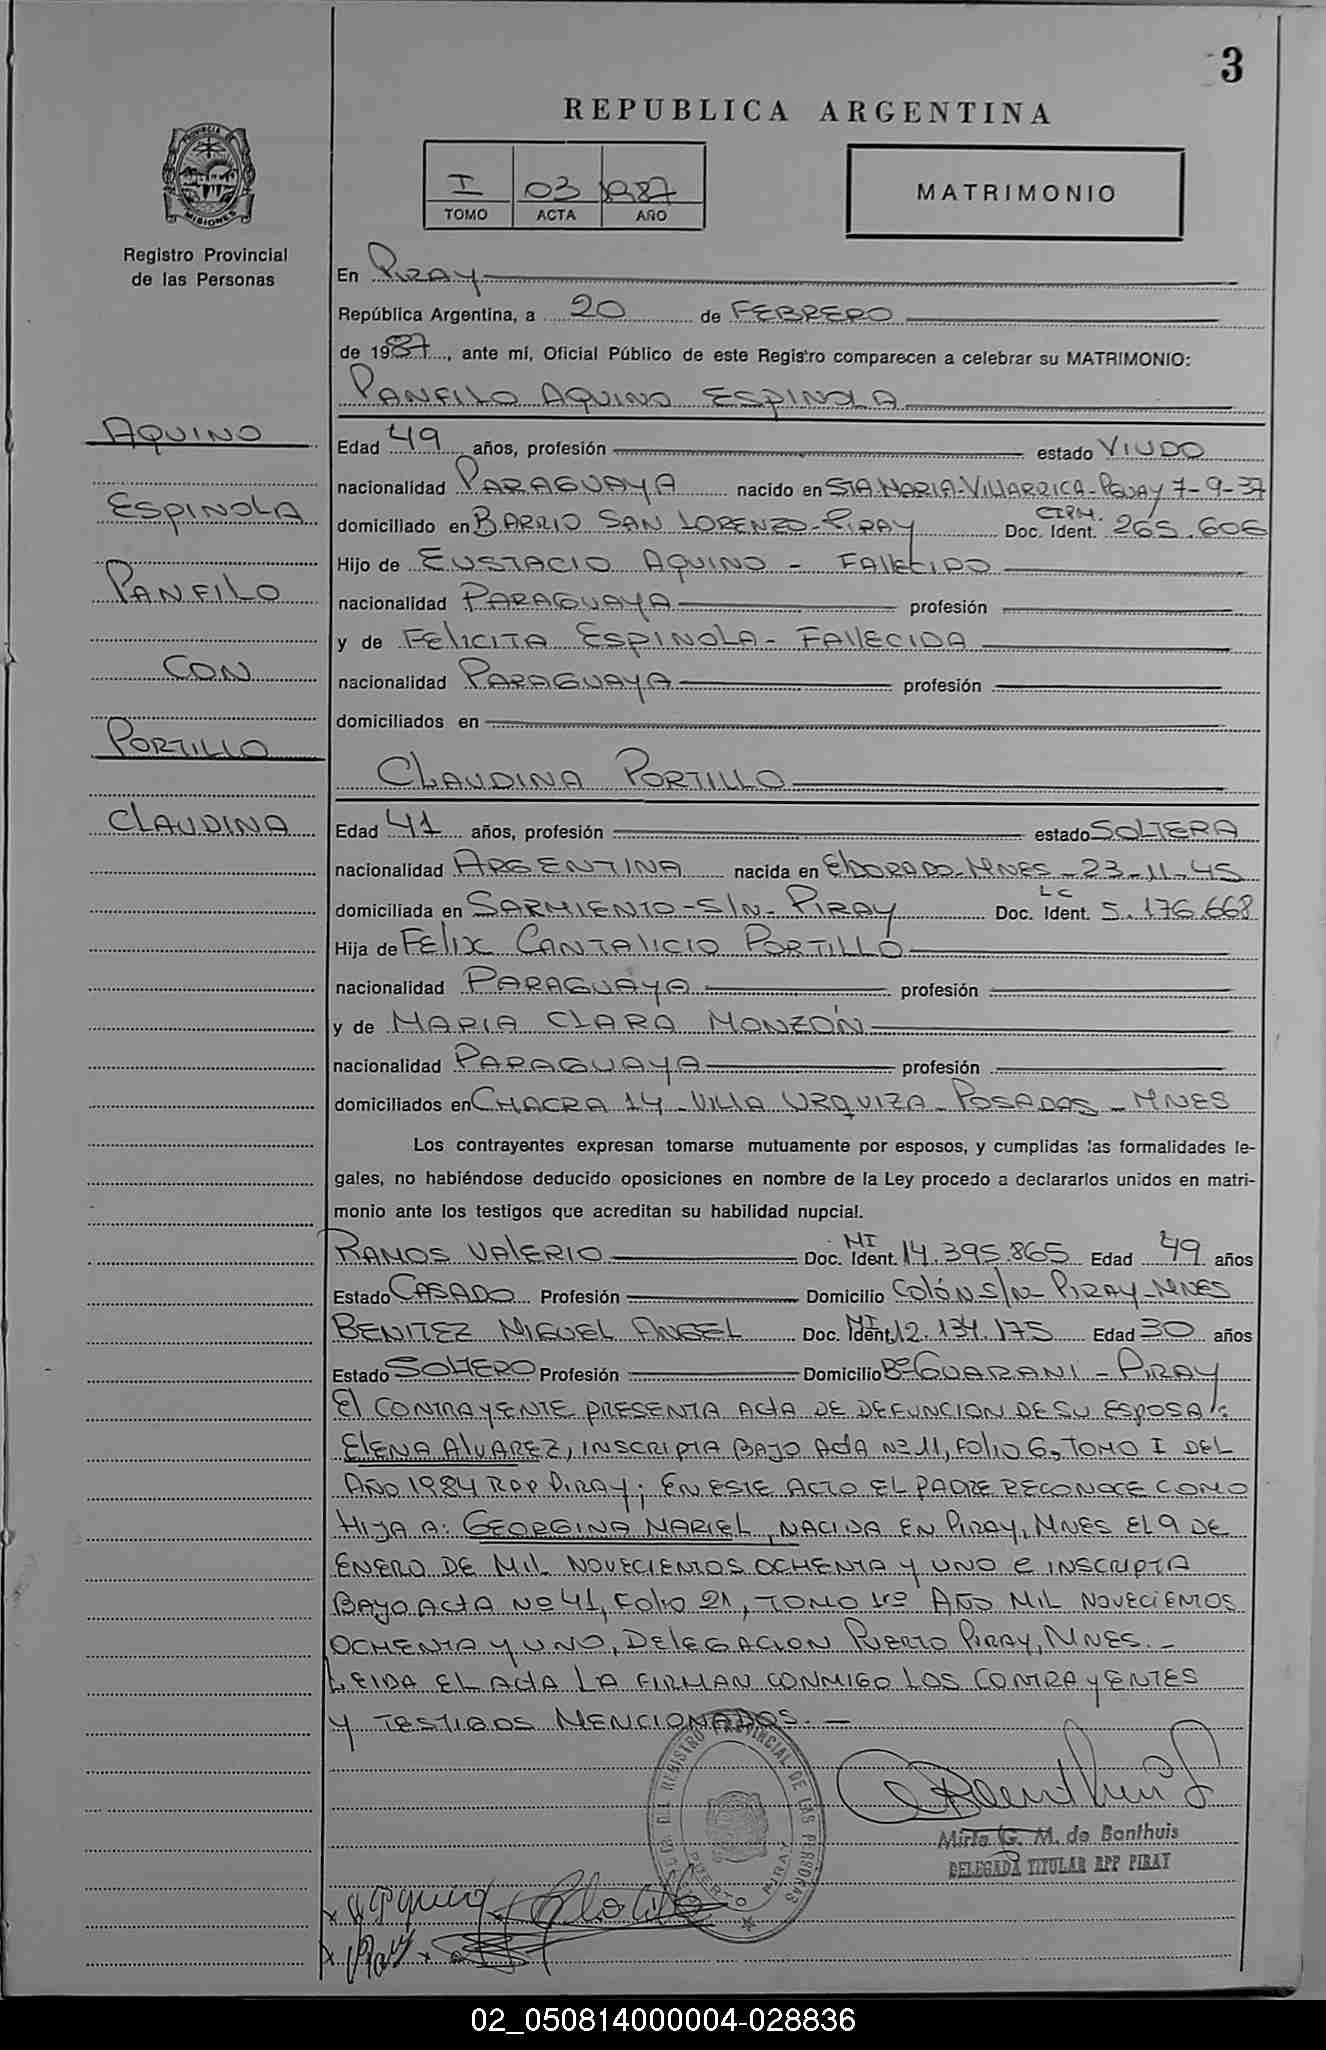 3
REPUBLICA ARGENTINA
PROVINCIA DE
MISIONES
Registro Provincial
de las Personas
I 03 1987
TOMO ACTA AÑO
MATRIMONIO
En PIRAY
República Argentina, a 20 de FEBRERO
de 1987, ante mí, Oficial Público de este Registro comparecen a celebrar su MATRIMONIO:
PANFILO AQUINO ESPINOLA
AQUINO
ESPINOLA
PANFILO
CON
PORTILLO
CLAUDINA
Edad 49 años, profesión estado VIUDO
nacionalidad PARAGUAYA nacido en STA MARIA-VILLARRICA-PGUAY 7-9-37
domiciliado en BARRIO SAN LORENZO-PIRAY Doc. Ident. CIPM. 265.606
Hijo de EUSTACIO AQUINO - FALLECIDO
nacionalidad PARAGUAYA profesión
y de FELICITA ESPINOLA - FALLECIDA
nacionalidad PARAGUAYA profesión
domiciliados en
CLAUDINA PORTILLO
Edad 41 años, profesión estado SOLTERA
nacionalidad ARGENTINA nacida en ELDORADO-MNES-23-11-45
domiciliada en SARMIENTO-S/N-PIRAY Doc. Ident. LC 5.176.668
Hija de FELIX CANTALICIO PORTILLO
nacionalidad PARAGUAYA profesión
y de MARIA CLARA MONZÓN
nacionalidad PARAGUAYA profesión
domiciliados en CHACRA 14-VILLA URQUIZA-POSADAS-MNES
Los contrayentes expresan tomarse mutuamente por esposos, y cumplidas las formalidades le-
gales, no habiéndose deducido oposiciones en nombre de la Ley procedo a declararlos unidos en matri-
monio ante los testigos que acreditan su habilidad nupcial.
RAMOS VALERIO Doc. Ident. MI 14.395.865 Edad 49 años
Estado CASADO Profesión Domicilio COLÓN S/N PIRAY-MNES
BENITEZ MIGUEL ANGEL Doc. Ident. MI 12.134.175 Edad 30 años
Estado SOLTERO Profesión Domicilio Bº GUARANI - PIRAY
El CONTRAYENTE PRESENTA ACTA DE DEFUNCION DE SU ESPOSA:
ELENA ALVAREZ, INSCRIPTA BAJO ACTA Nº 11, FOLIO 6, TOMO I DEL
AÑO 1984 RPP PIRAY; EN ESTE ACTO EL PADRE RECONOCE COMO
HIJA A: GEORGINA MARIEL, NACIDA EN PIRAY, MNES EL 9 DE
ENERO DE MIL NOVECIENTOS OCHENTA Y UNO e INSCRIPTA
BAJO ACTA Nº 41, FOLIO 21, TOMO 1rº AÑO MIL NOVECIENTOS
OCHENTA Y UNO, DELEGACION PUERTO PIRAY, MNES.-
LEIDA EL ACTA LA FIRMAN CONMIGO LOS CONTRAYENTES
Y TESTIGOS MENCIONADOS.-
REGISTRO PROVINCIAL DE LAS PERSONAS
PUERTO PIRAY
Mirta G. M. de Banthuis
DELEGADA TITULAR RPP PIRAY
02_050814000004-028836